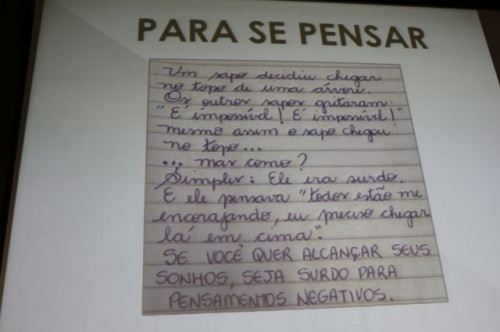 PARA SE PENSAR
Um sapo decidiu chegar
no topo de uma árvore.
Os outros sapos gritaram:
"É impossível! É impossível!"
mesmo assim o sapo chegou
no topo...
... mas como?
Simples: Ele era surdo.
E ele pensava "todos estão me
encorajando, eu preciso chegar
lá em cima".
SE VOCÊ QUER ALCANÇAR SEUS
SONHOS, SEJA SURDO PARA
PENSAMENTOS NEGATIVOS.